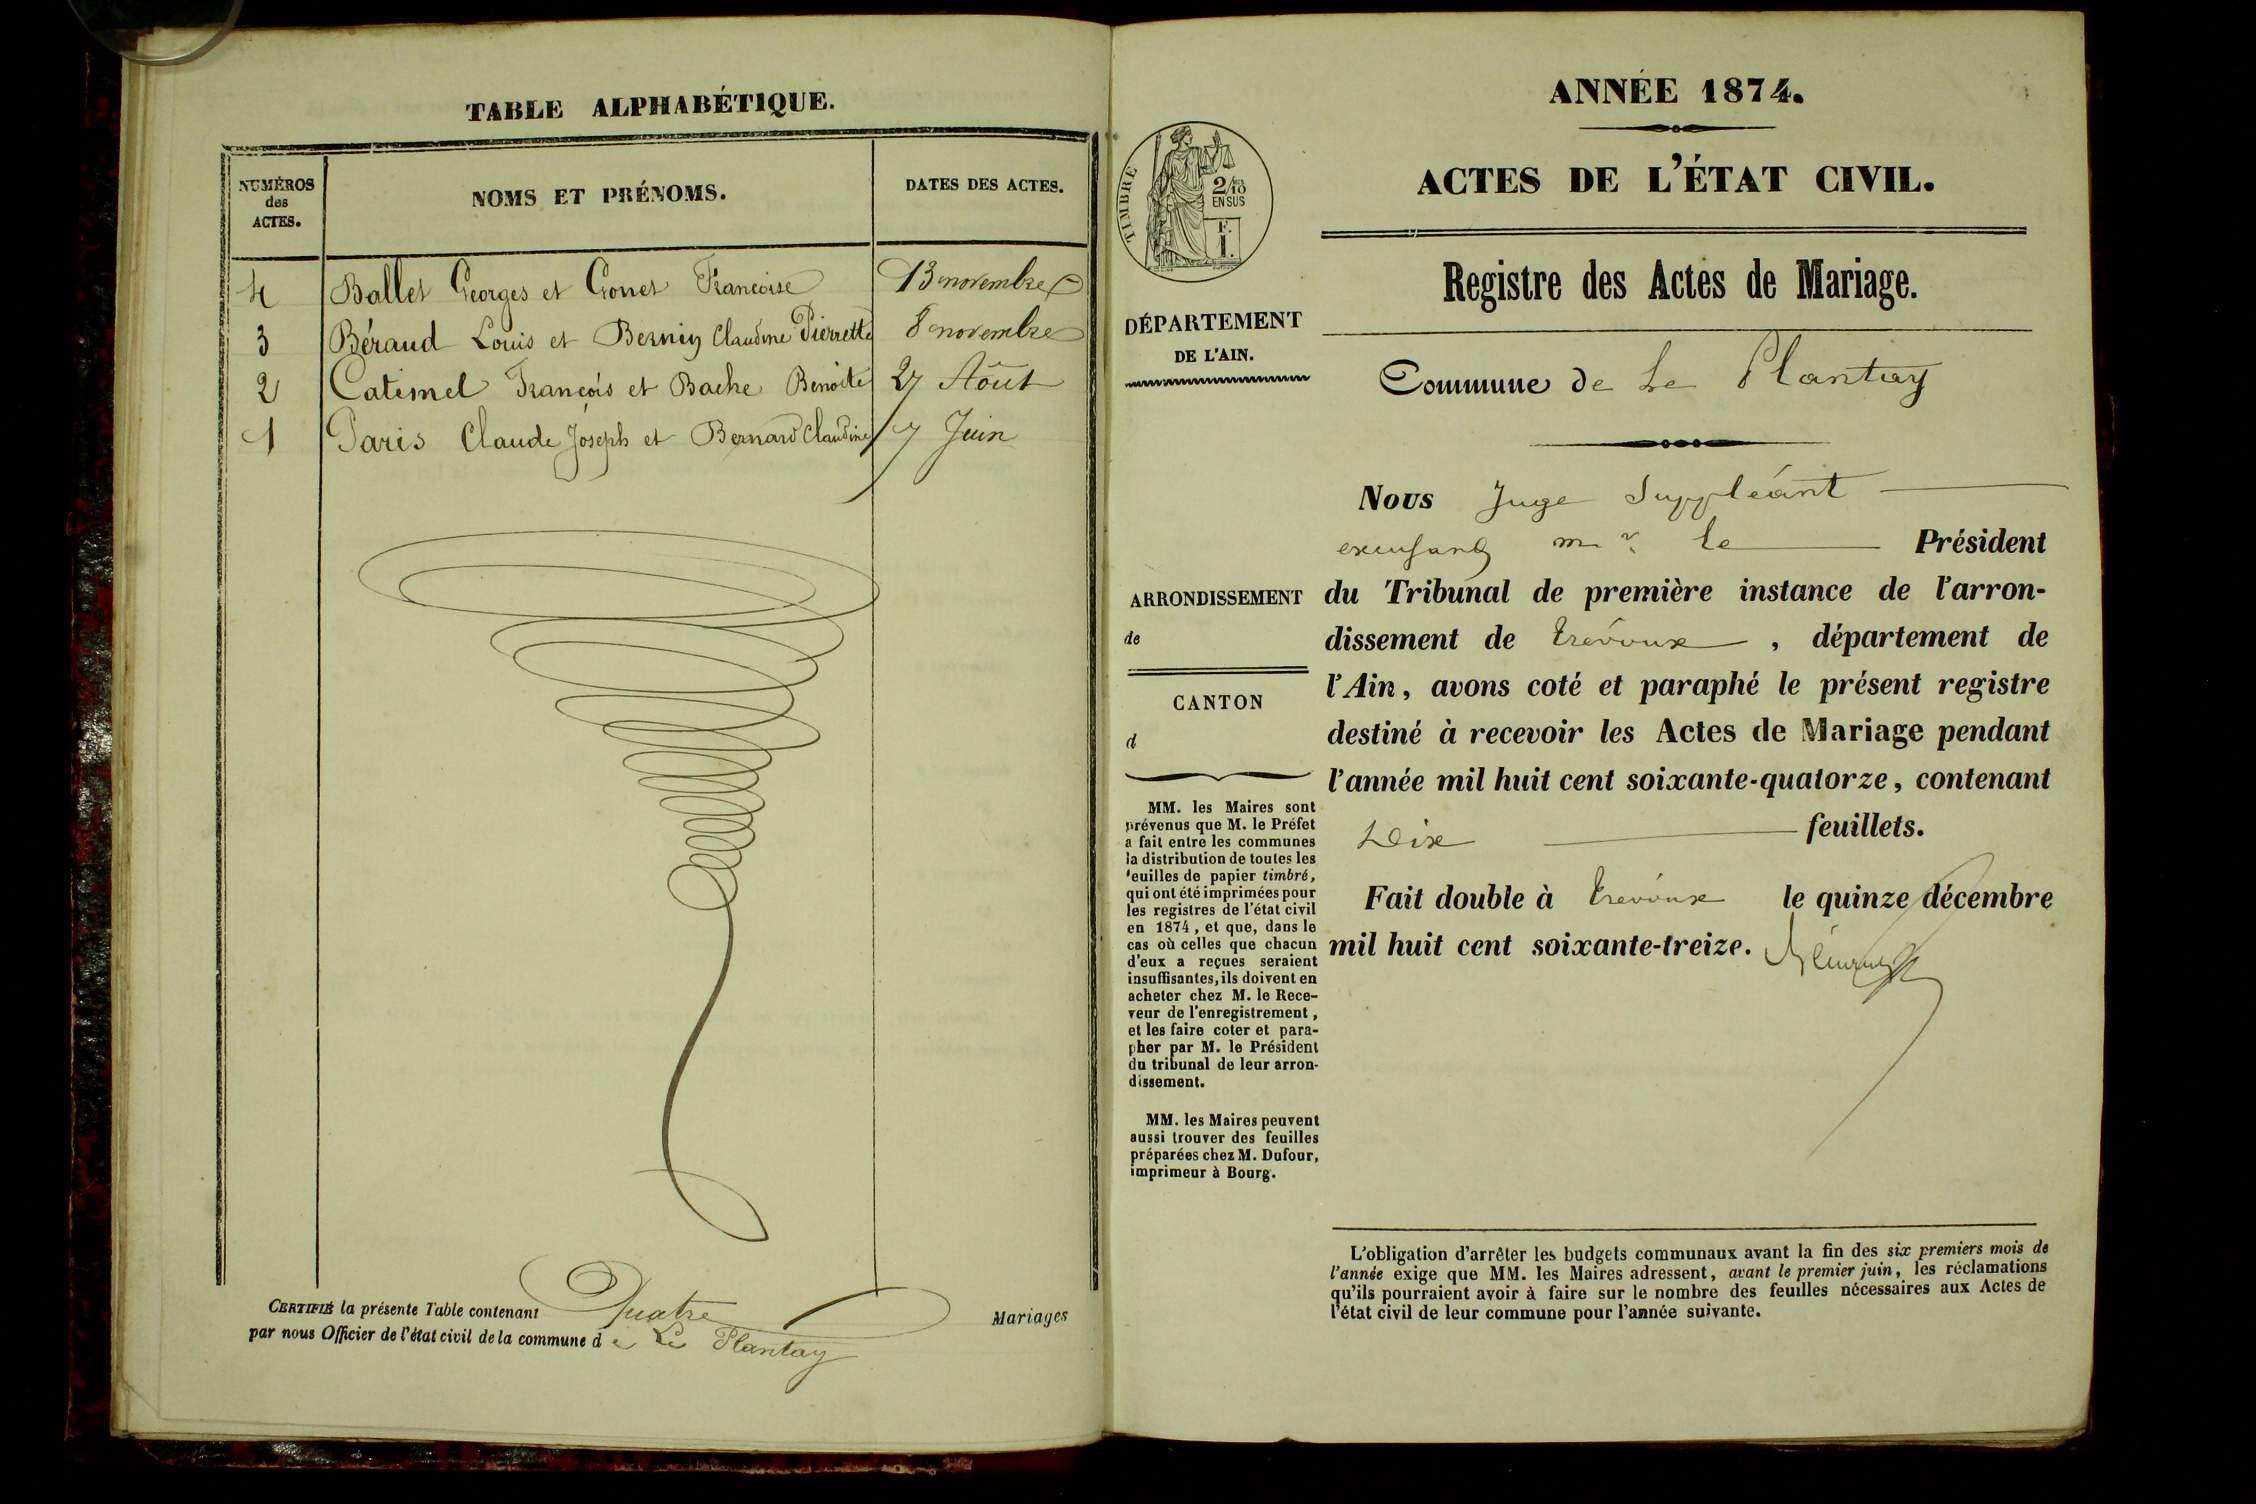 TABLE ALPHABÉTIQUE.
NUMÉROS
des
ACTES.
NOMS ET PRÉNOMS.
DATES DES ACTES.
4 Ballet Georges et Gonet Francoise 13 novembre
3 Béraud Louis et Bernin Claudine Pierrette 8 novembre
2 Catimel François et Bache Benoite 27 Août
1 Paris Claude Joseph et Bernard Claudine 7 Juin
CERTIFIÉ la présente Table contenant Quatre Mariages
par nous Officier de l'état civil de la commune de Le Plantay
ANNÉE 1874.
ACTES DE L'ÉTAT CIVIL.
Registre des Actes de Mariage.
TIMBRE
2/10
EN SUS
F.
1.
DÉPARTEMENT
DE L'AIN.
ARRONDISSEMENT
de
CANTON
d
MM. les Maires sont
prévenus que M. le Préfet
a fait entre les communes
la distribution de toutes les
feuilles de papier timbré,
qui ont été imprimées pour
les registres de l'état civil
en 1874, et que, dans le
cas où celles que chacun
d'eux a reçues seraient
insuffisantes, ils doivent en
acheter chez M. le Rece-
veur de l'enregistrement,
et les faire coter et para-
pher par M. le Président
du tribunal de leur arron-
dissement.
MM. les Maires peuvent
aussi trouver des feuilles
préparées chez M. Dufour,
imprimeur à Bourg.
Commune de Le Plantay
Nous Juge Suppléant
mr. le Président
du Tribunal de première instance de l'arron-
dissement de Trévoux, département de
l'Ain, avons coté et paraphé le présent registre
destiné à recevoir les Actes de Mariage pendant
l'année mil huit cent soixante-quatorze, contenant
Dix feuillets.
Fait double à Trévoux le quinze décembre
mil huit cent soixante-treize.
L'obligation d'arrêter les budgets communaux avant la fin des six premiers mois de
l'année exige que MM. les Maires adressent, avant le premier juin, les réclamations
qu'ils pourraient avoir à faire sur le nombre des feuilles nécessaires aux Actes de
l'état civil de leur commune pour l'année suivante.